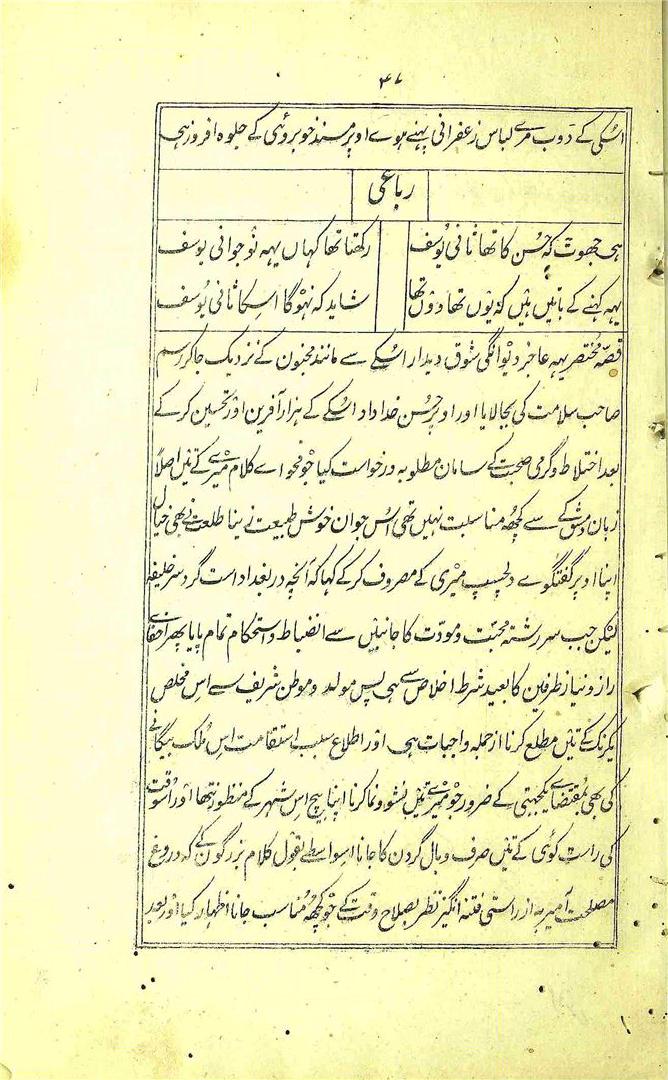 ۴۷
اسکی کے دوب مرے لباس زعفرانی پہنے ہوے اوپر مسند خوبروئی کے جلوہ افروز ہی
رباعی
ہی جھوت کہ حسن کا تھا ثانی یُوسف رکھتا تھا کہاں یہہ نوجوانی یوسف
یہہ کہنے کے باتیں ہیں کہ یوں تھا ووں تھا شاید کہ نہوگا اسکا ثانی یُوسف
قصّہ مختصر یہہ عاجز دیوانگی شوق دیدار اسکے سے مانند مجنون کے نزدیک جا کر رسم
صاحب سلامت کی بجا لایا اور اوپر حسن خداداد اسکے کے ہزار آفرین اور تحسین کر کے
بعد اختلاط و گرمی صحبت کے سامان مطلوبہ درخواست کیا جو فحواے کلام میرے کے تئیں اصلاً
زبان دمشق کے سے کچھہ مناسبت نہیں تھی اس جوان خوش طبیعت نے طلعت نے بھی خیال
اپنا اوپر گفتگوے دلچسپ میری کے مصروف کر کے کہا کہ آنچہ در بغداد است گرد سر خلیفہ
لیکن جب سررشتہ محبّت و مودّت کا جانبین سے انضباط و استحکام تمام پایا پھر اخفاے
راز و نیاز طرفین کا بعید شرط اخلاص سے ہی پس مولد و موطن شریف سے اس مخلص
یکرنگ کے تئیں مطلع کرنا از جملہ واجبات ہی اور اطلاع سبب استقامت اس ملک بیگانے
کی بھی بمقتضاے یکجہتی کے ضرور جو میرے تئیں نشو و نما کرنا اپنا بیچ اس شہر کے منظور نتھا اور اسوقت
کی راست گوئی کے تئیں صرف وبال گردن کا جانا اسواسطے بقول کلام بزرگون کے کہ دروغ
مصلحت آمیز بہ از راستی فتنہ انگیز نظر بصلاح وقت کے جو کچھہ مناسب جانا اظہار کیا اور بعد